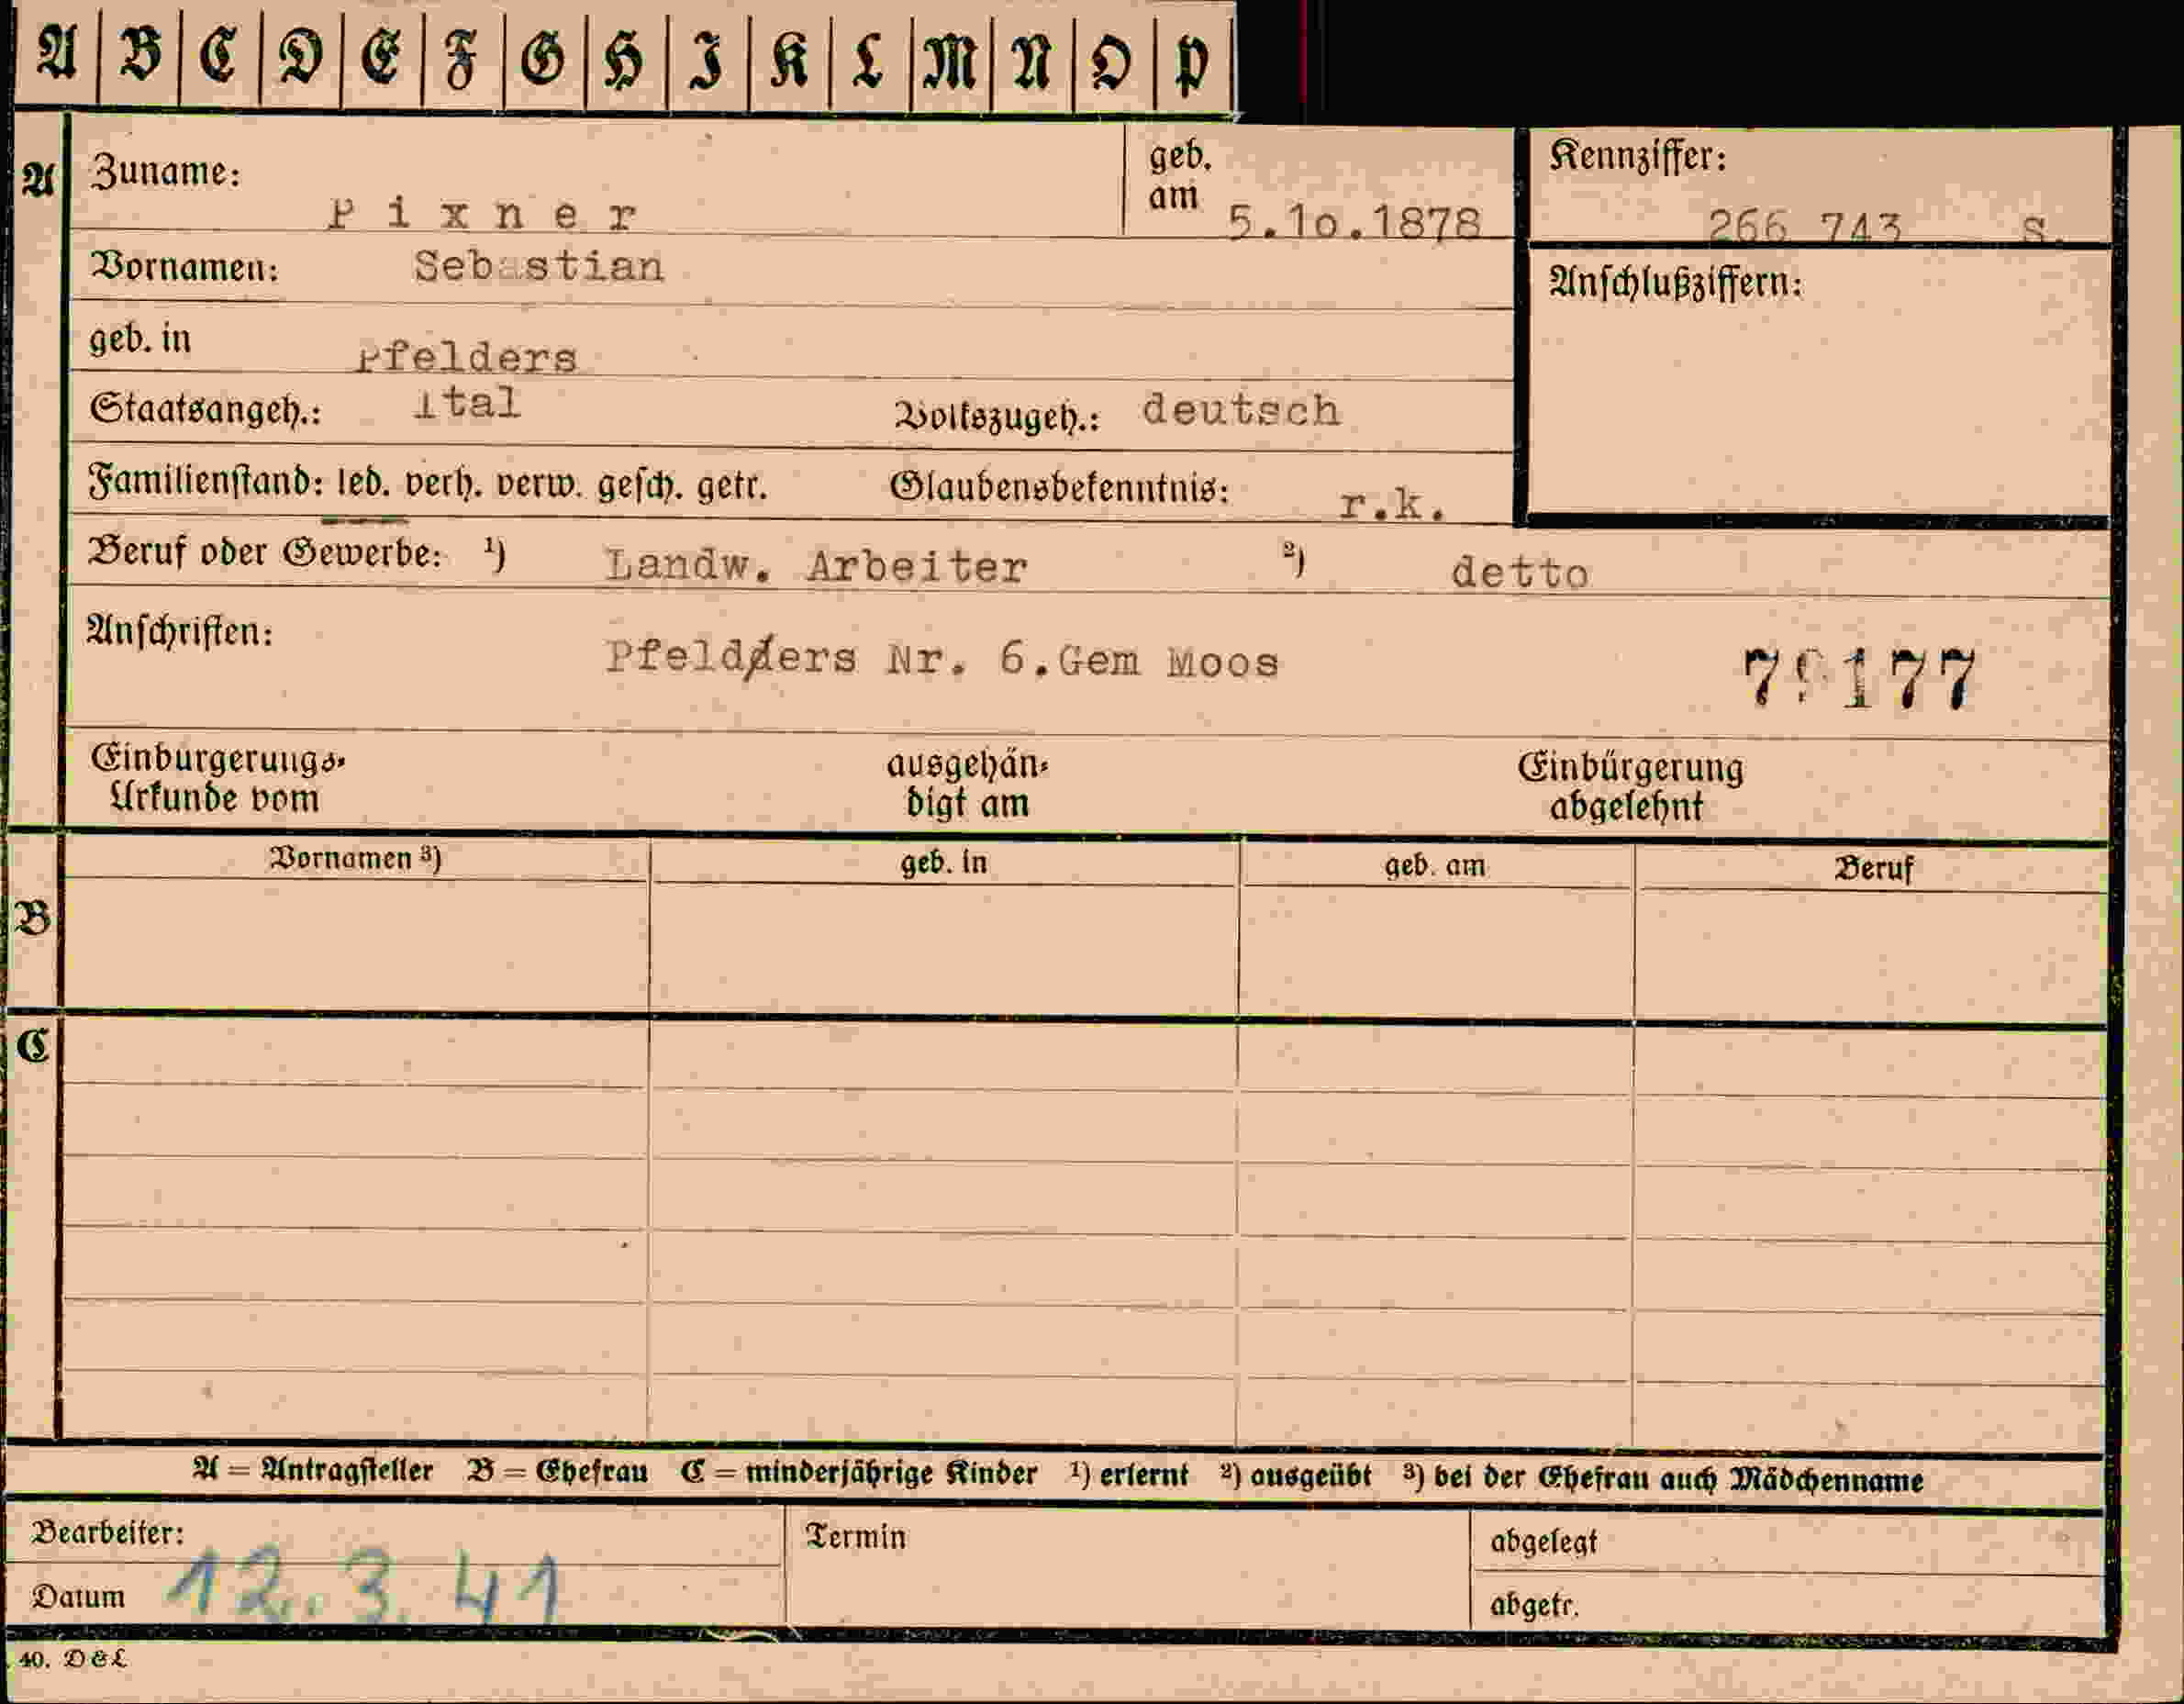 A B C D E F G H I K L M N O P
A Zuname: Pixner geb. am 5.10.1878 Kennziffer: 266 743 S.
Vornamen: Sebastian Anschlußziffern:
geb. in Pfelders
Staatsangeh.: ital Volkszugeh.: deutsch
Familienstand: led. verh. verw. gesch. getr. Glaubensbekenntnis: r.k.
Beruf oder Gewerbe: 1) Landw. Arbeiter 2) detto
Anschriften: Pfelders Nr. 6.Gem Moos
Einbürgerungs- ausgehän- Einbürgerung
Urkunde vom digt am abgelehnt
B Vornamen 3) geb. in geb. am Beruf
C
A = Antragsteller B = Ehefrau C = minderjährige Kinder 1) erlernt 2) ausgeübt 3) bei der Ehefrau auch Mädchenname
Bearbeiter: Termin abgelegt
Datum 12.3.41 abgetr.
40. D&L